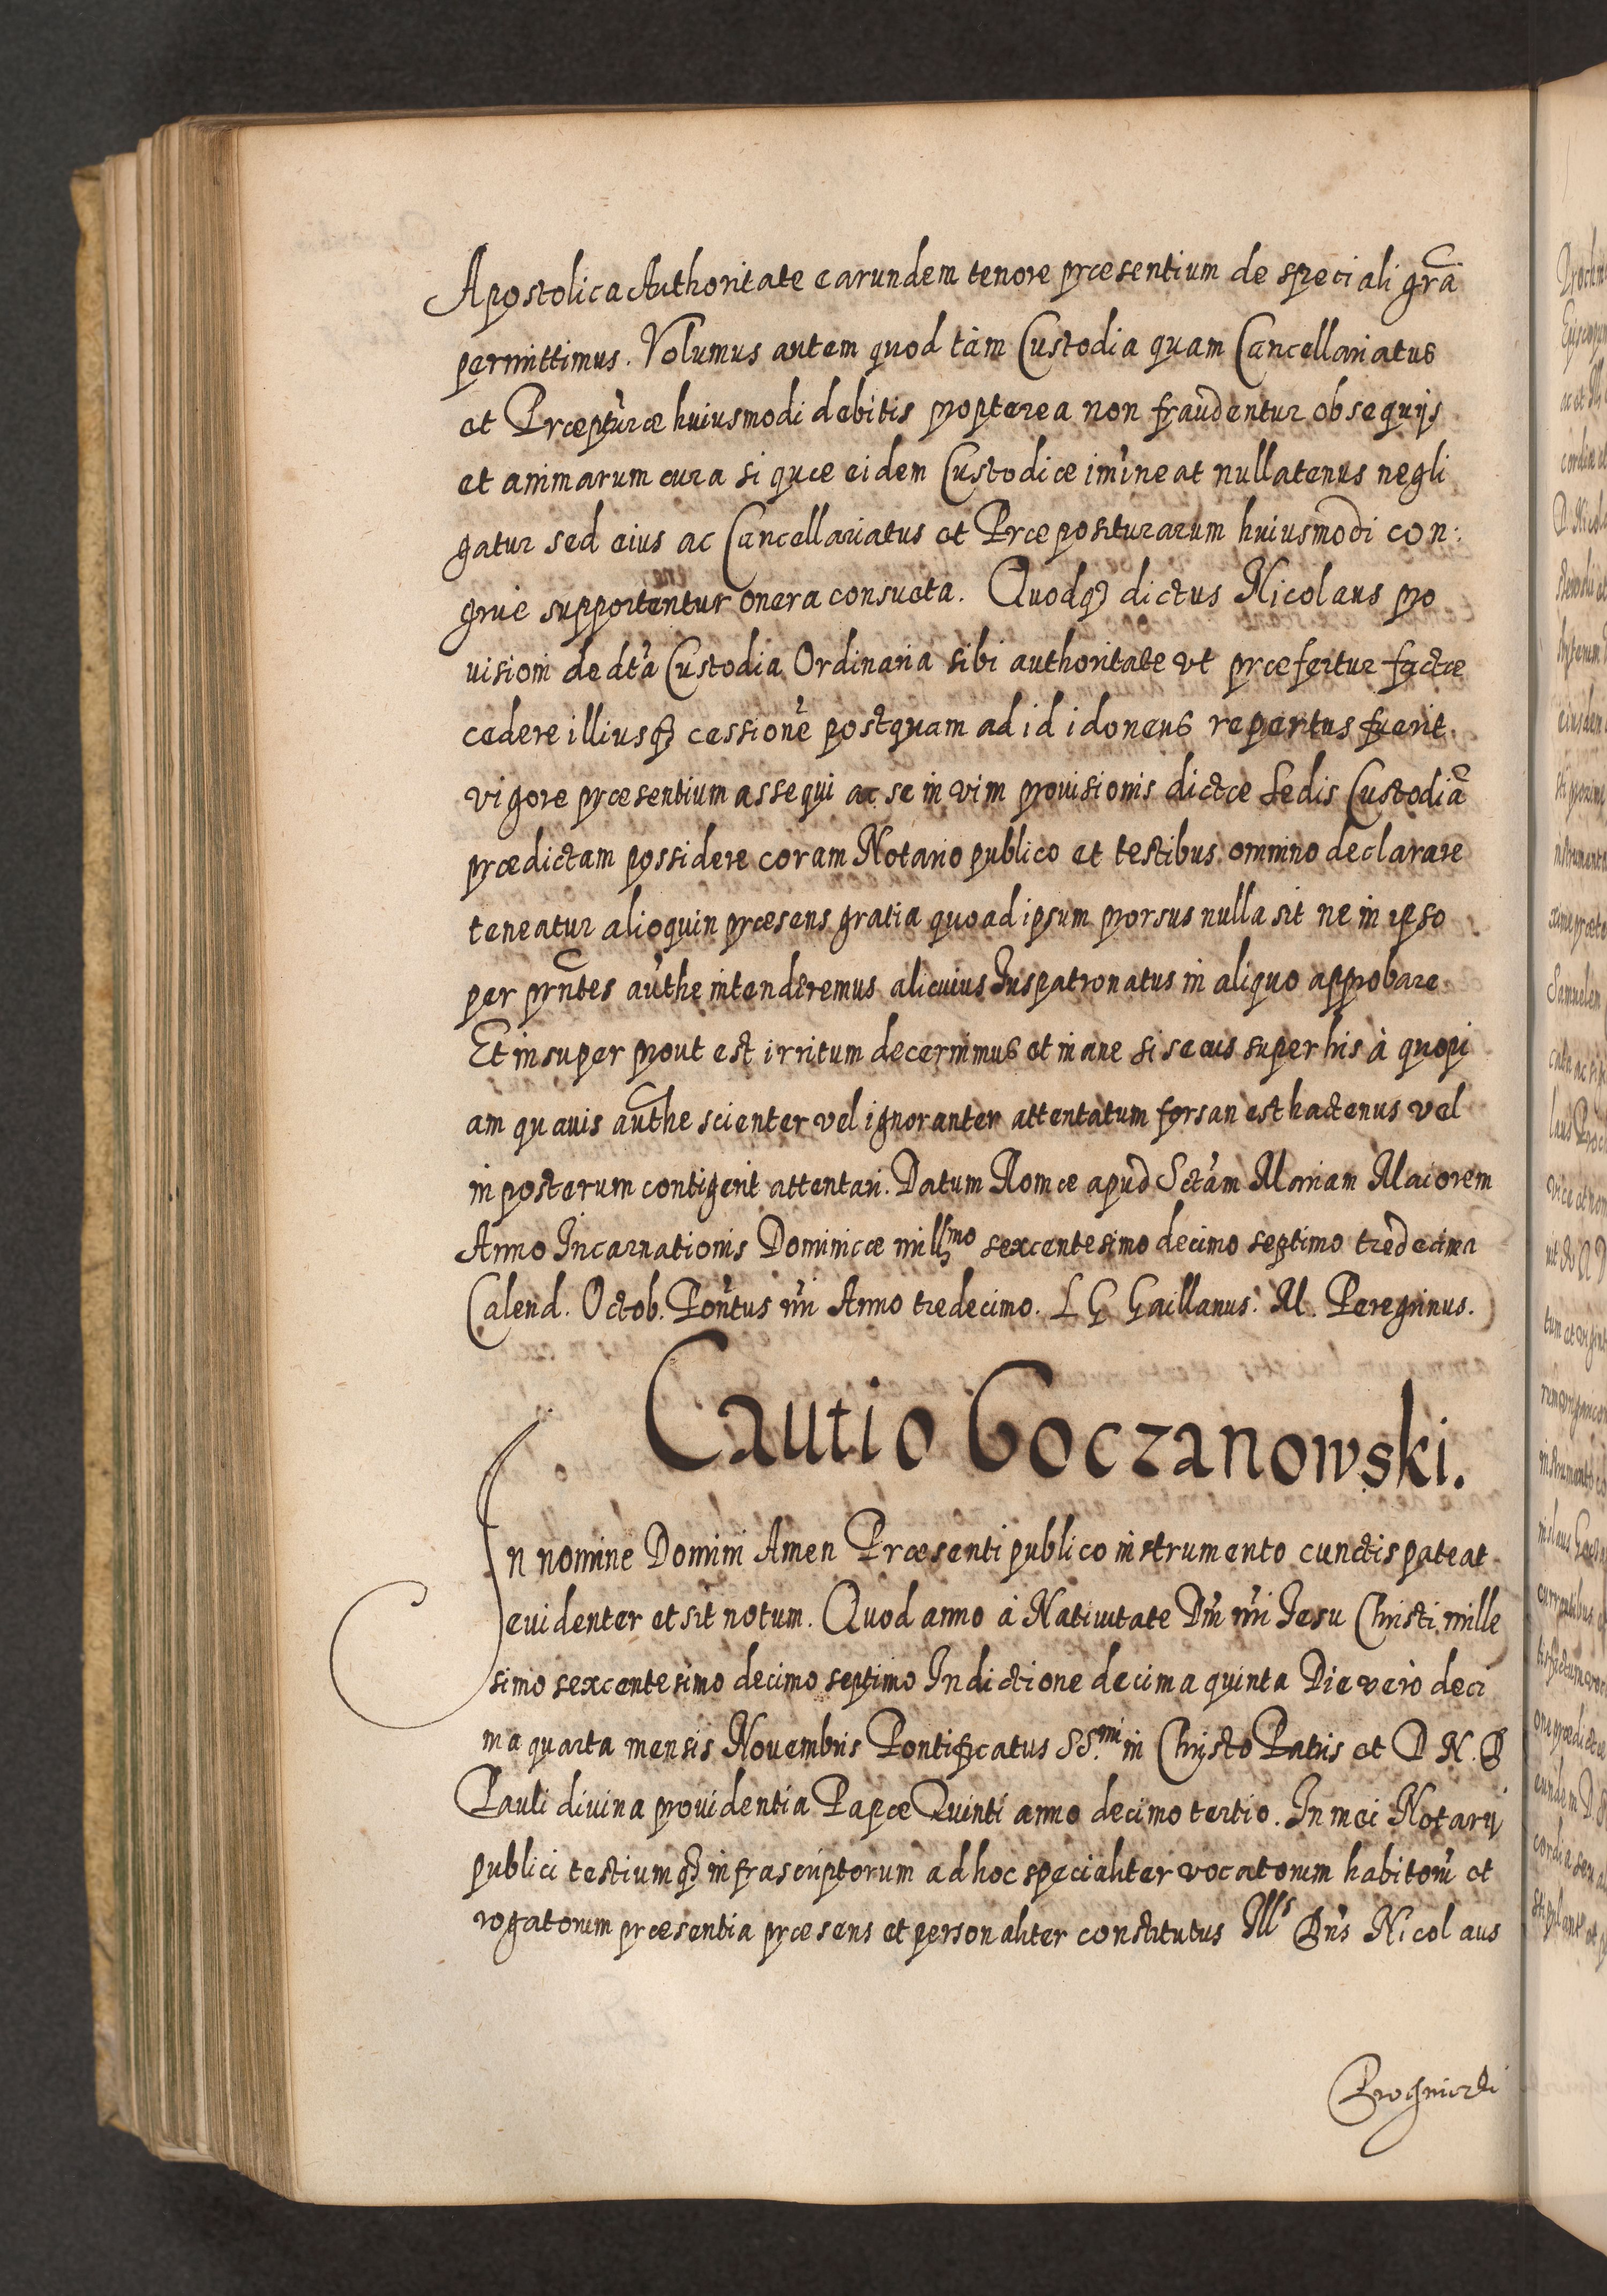 Apostolica Authoritate earundem tenore præsentium de speciali gra͠
permittimus. Volumus autem quod tàm Custodia quam Cancellariatus
et Præptúræ huiusmodi debitis propterea non fraudentur obsequijs
et animarum cura si quæ eidem Custodiæ im̃ineat nullatenus negli
gatur sed eius ac Cancellariatus et Præpositurarum huiusmodi con:
grue supportentur onera consueta. Quodq₃ dictus Nicolaus pro
uisioni de dt̃a Custodia Ordinaria sibi authoritate vt præfertur factæ
cedere illiusq₃ cessione postquam ad id idoneus repertus fuerit
vigore præsentium assequi ac se in vim prouisionis dictæ Sedis Custodia͠
prædictam possidere coram Notario publico et testibus omnino declarare
teneatur alioquin præsens gratia quoad ipsum prorsus nulla sit ne in ipso
per pr̃ntes aut͠he intenderemus alicuius Juspatronatus in aliquo approbare
Et insuper prout est irritum decernimus et inane si secus super his à quopi
am quauis aut͠he scienter vel ignoranter attentatum forsan est hactenus vel
in posterum contigerit attentari. Datum Romæ apud Sctãm Mariam Maiorem
Anno Incarnationis Dominicæ mill̃mo sexcentesimo decimo septimo tredecima
Calend. Octob. Pontũs ñri Anno tredecimo. L G Gaillanus. M. Peregrinus.
Cautio Goczanowski.
In nomine Domini Amen Præsenti publico instrumento cunctis pateat
euidenter et sit notum. Quod anno à Natiuitate Dñi ñri Jesu Christi mille
simo sexcentesimo decimo septimo Indictione decima quinta Die verò deci
ma quarta mensis Nouembris Pontificatus SS.mi in Christo Patris et D N. D
Pauli diuina prouidentia Papæ Quinti anno decimo tertio. In mei Notarij
publici testiumq₃ infrascriptorum ad hoc specialiter vocatorum habitorũ et
rogatorum præsentia præsens et personaliter constitutus Ill͛s Dñs Nicolaus